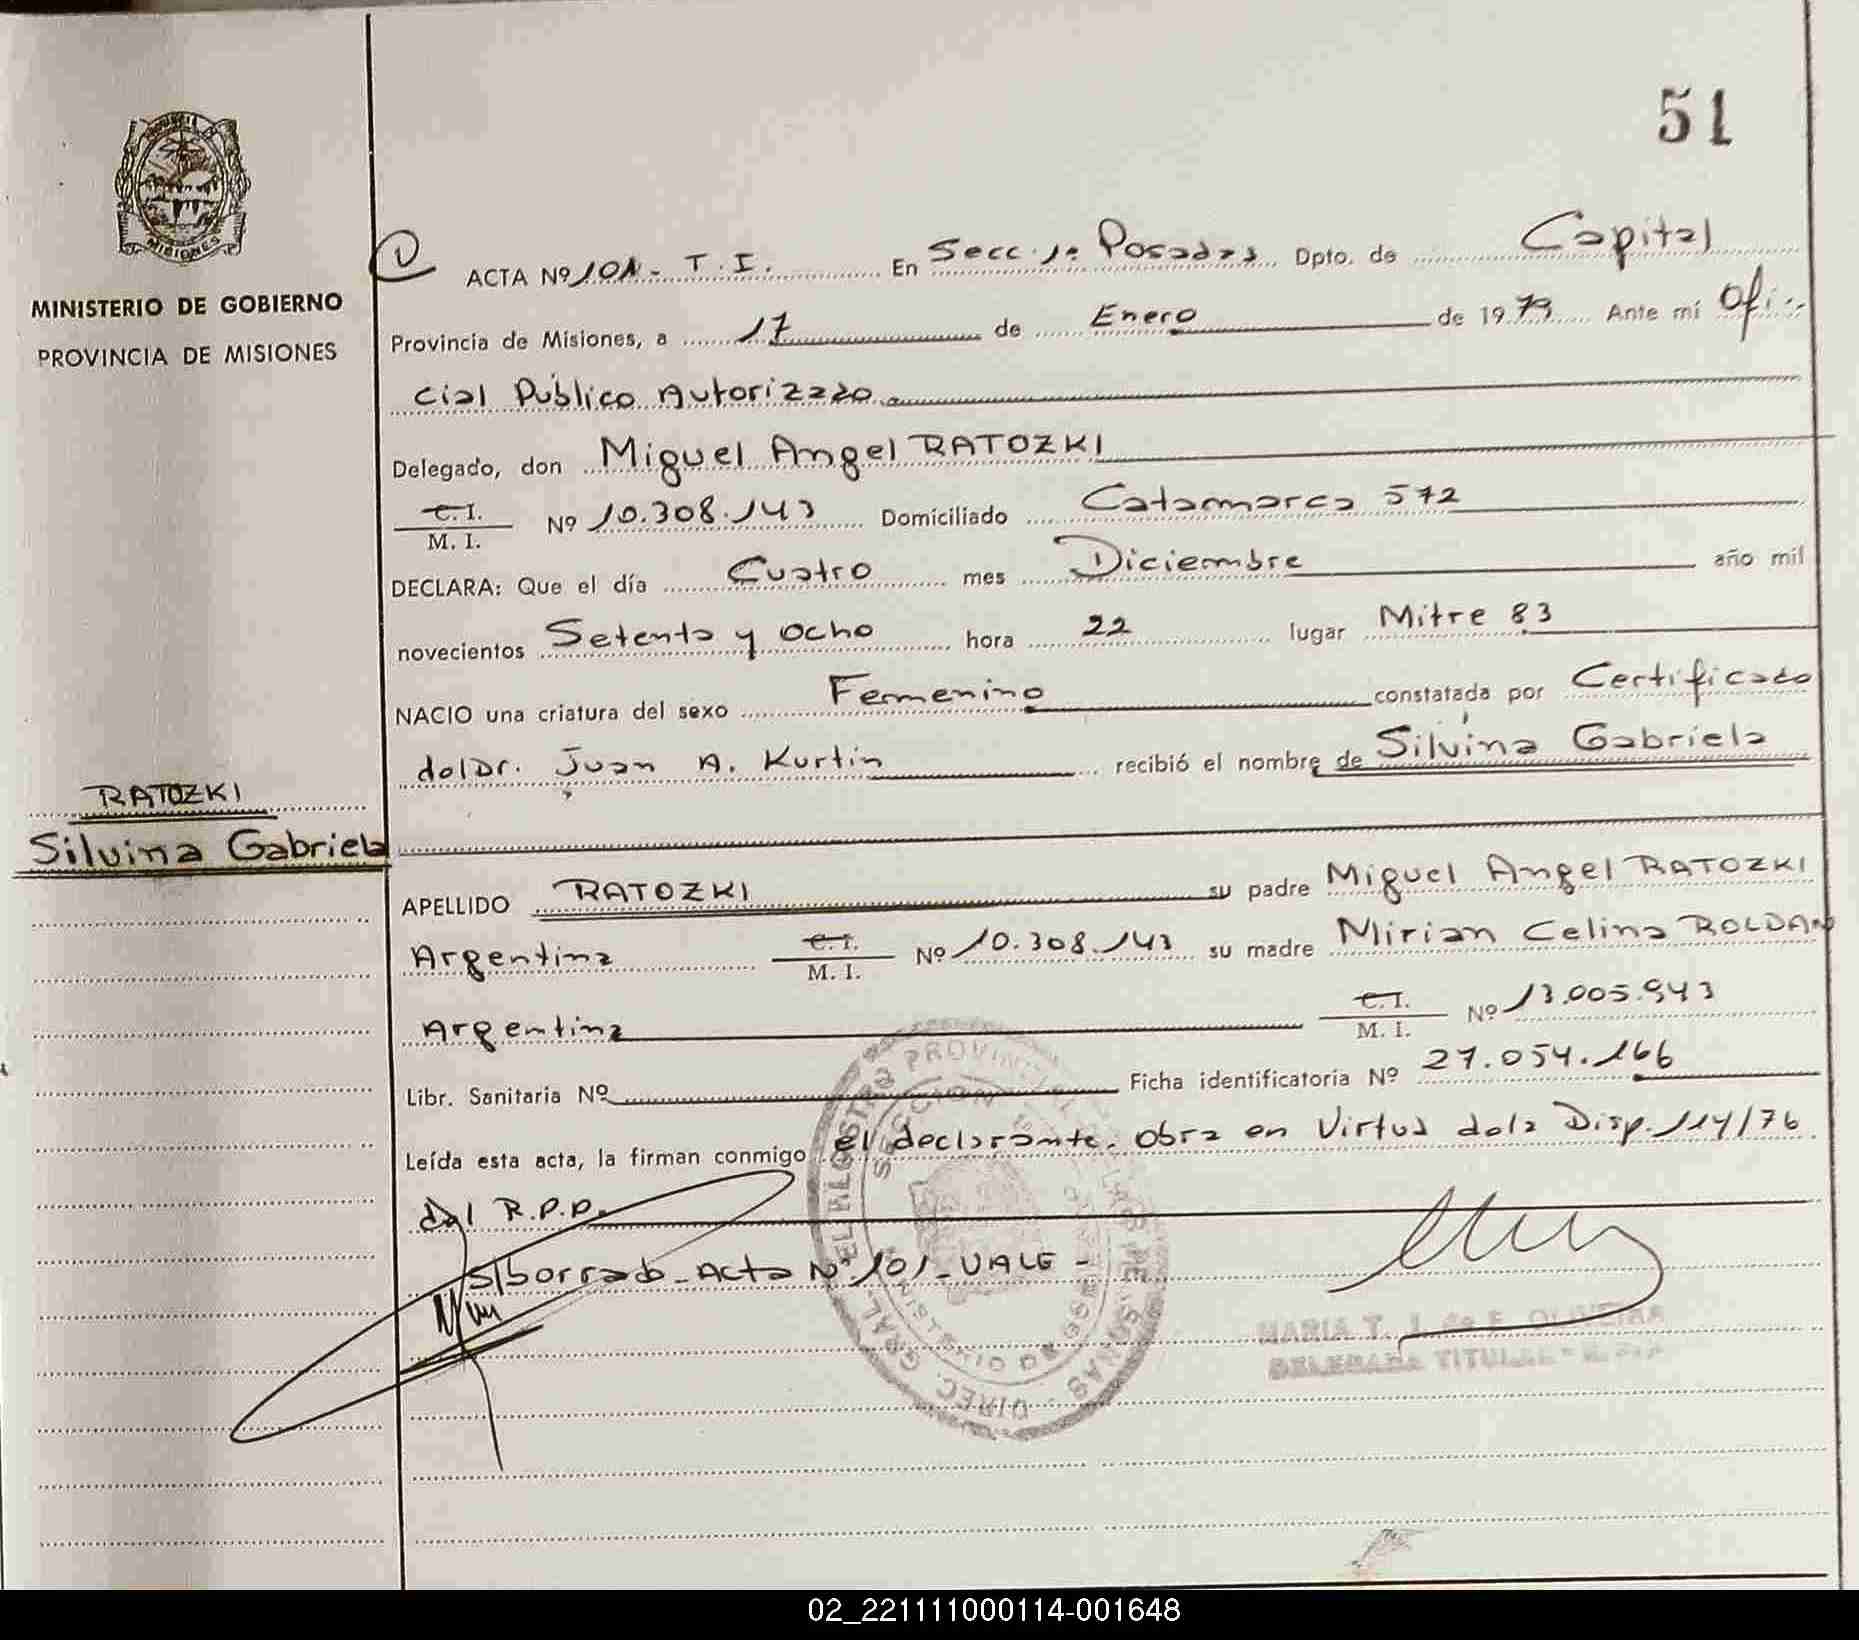 51
PROVINCIA DE
MISIONES
MINISTERIO DE GOBIERNO
PROVINCIA DE MISIONES
ACTA Nº 101 - T. I. En Secc. 1ª Posadas Dpto. de Capital
Provincia de Misiones, a 17 de Enero de 1979 Ante mí Ofi-
cial Público Autorizado
Delegado, don Miguel Angel RATOZKI
C. I.
M. I. Nº 10.308.143 Domiciliado Catamarca 572
DECLARA: Que el día Cuatro mes Diciembre año mil
novecientos Setenta y ocho hora 22 lugar Mitre 83
NACIO una criatura del sexo Femenino constatada por Certificado
del Dr. Juan A. Kurtin recibió el nombre de Silvina Gabriela
RATOZKI
Silvina Gabriela
APELLIDO RATOZKI su padre Miguel Angel RATOZKI
Argentina C. I.
M. I. Nº 10.308.143 su madre Mirian Celina ROLDAN
Argentina C. I.
M. I. Nº 13.005.943
Libr. Sanitaria Nº Ficha identificatoria Nº 27.054.166
Leída esta acta, la firman conmigo el declarante. obra en Virtud dela Disp. 114/76
del R.P.P.
s/borrado - Acta Nº 101 - VALE -
DIREC. GRAL. DEL REGISTRO PROVINCIAL DE LAS PERSONAS
MARIA T. J. de F. OLIVEIRA
DELEGADA TITULAR
02_221111000114-001648